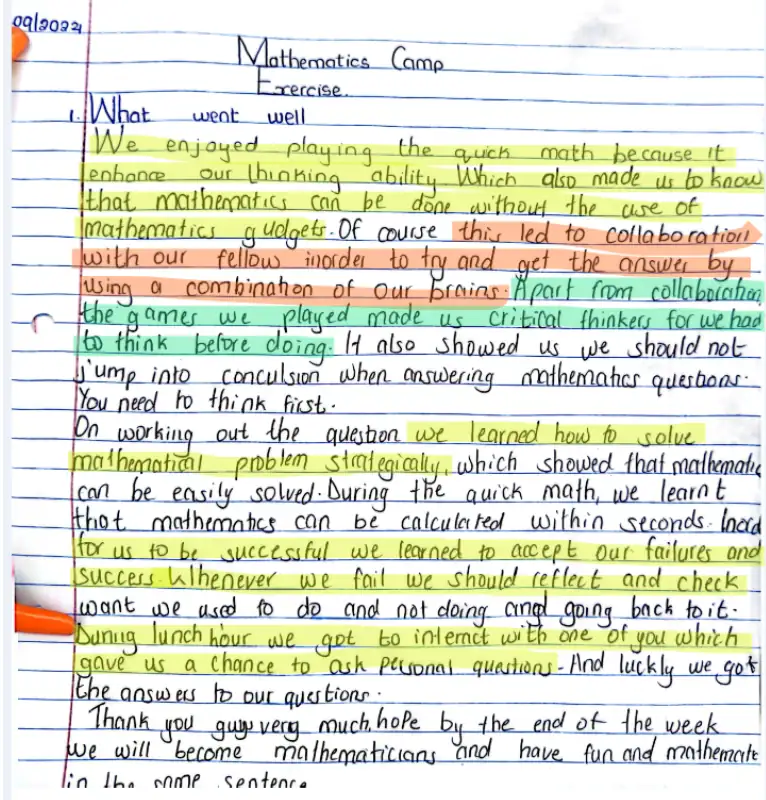 09/2024
Mathematics Camp
Exercise.
1. What went well
We enjoyed playing the quick math because it
enhance our thinking ability. Which also made us to know
that mathematics can be done without the use of
mathematics gudgets. Of course this led to collaboration
with our fellow inorder to try and get the answer by
using a combination of our brains. Apart from collaboration,
the games we played made us critical thinkers for we had
to think before doing. It also showed us we should not
jump into conculsion when answering mathematics questions.
You need to think first.
On working out the question we learned how to solve
mathematical problem strategically, which showed that mathematic
can be easily solved. During the quick math, we learnt
that mathematics can be calculated within seconds. Inord
for us to be successful we learned to accept our failures and
success. Whenever we fail we should reflect and check
want we used to do and not doing and going back to it.
During lunch hour we got to interact with one of you which
gave us a chance to ask personal questions. And luckly we got
the answers to our questions.
Thank you guys very much, hope by the end of the week
we will become mathematicians and have fun and mathematic
in the same sentence